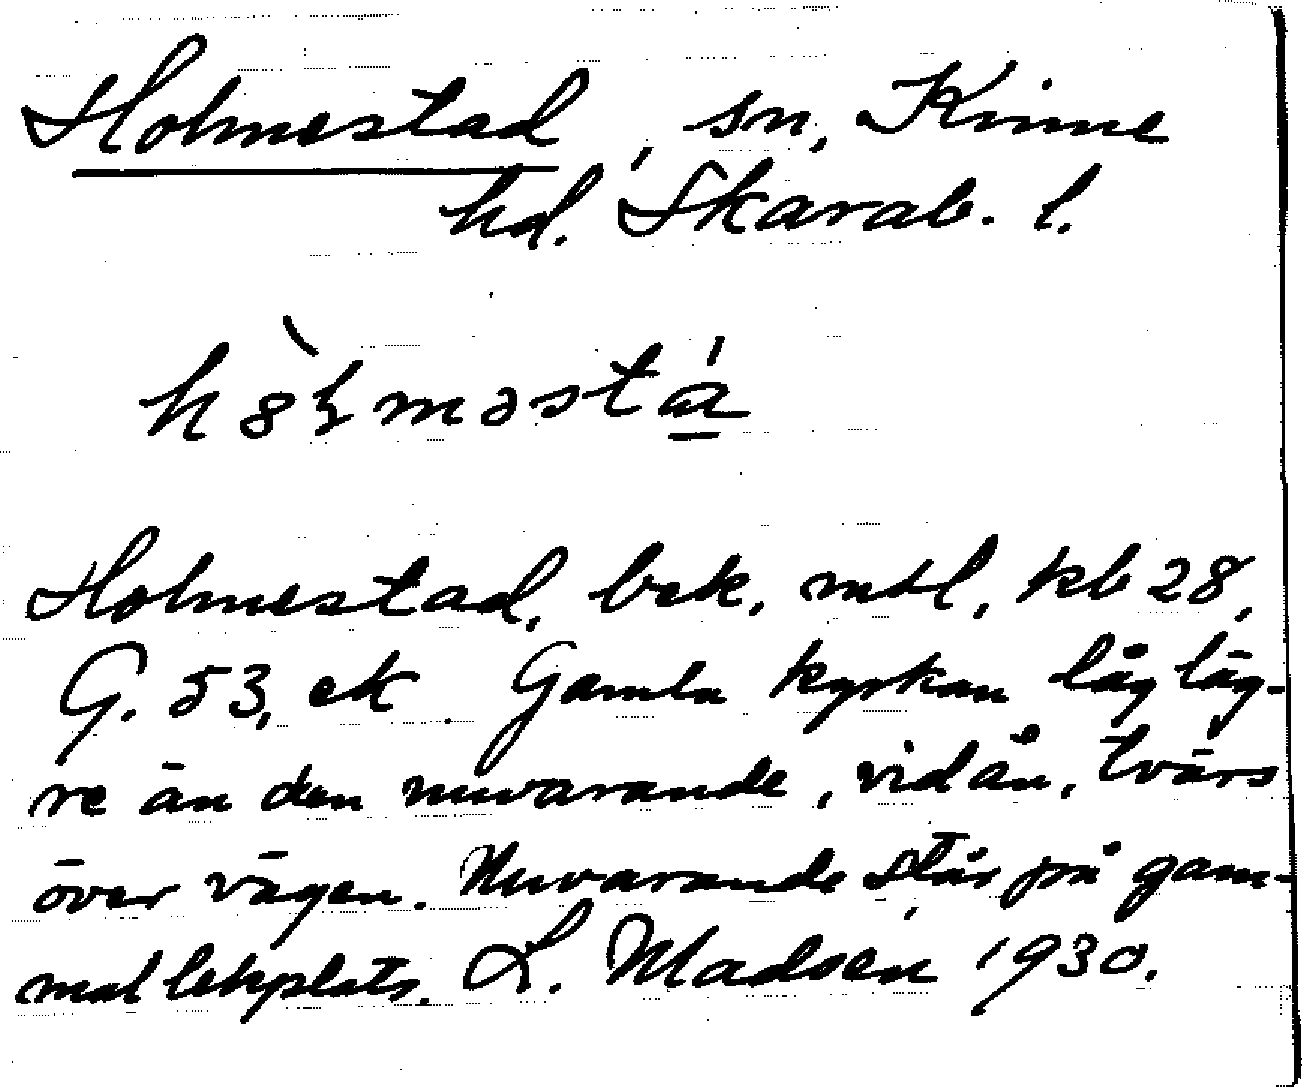 Holmestad, sn, Kinne
hd. Skarab. l.
hòⱡməstá
Holmestad, bek, mtl, kb 28,
G. 53, ek. Gamla kyrkan låg läg-
re än den nuvarande, vid ån, tvärs
över vägen. Nuvarande står på gam-
mal lekplats. L. Madsen 1930.